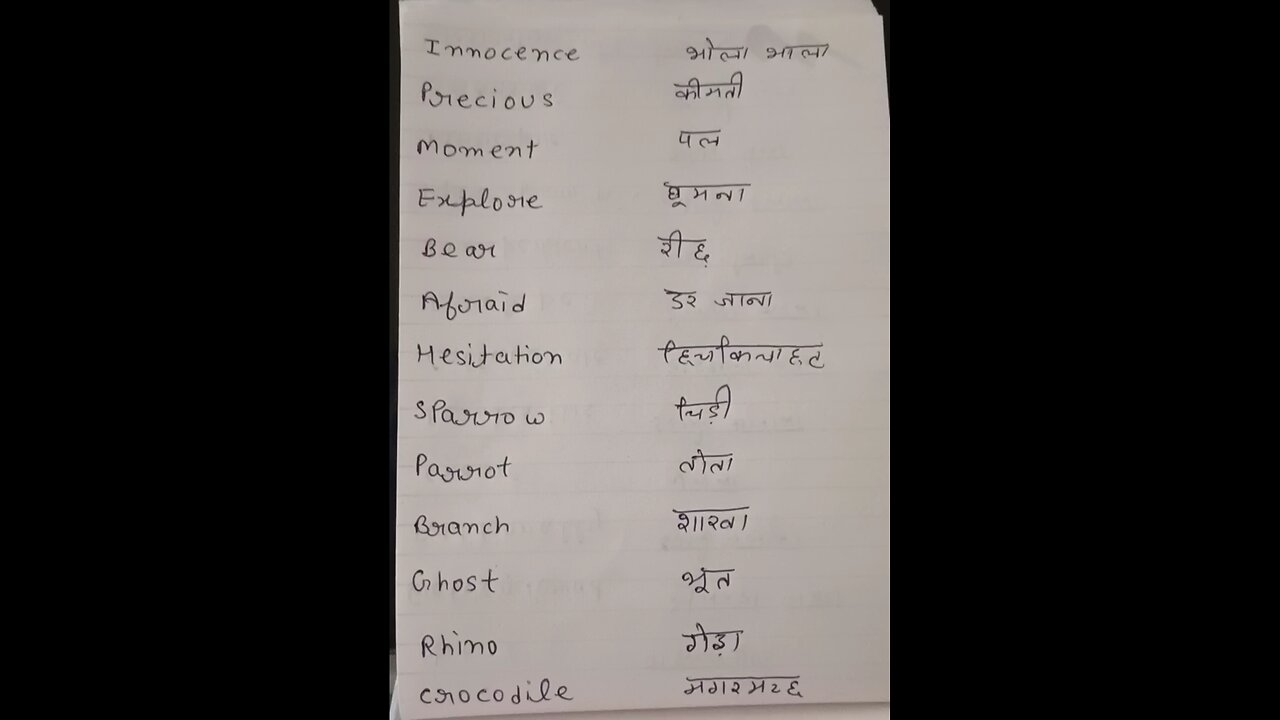 Innocence भोला भाला
Precious कीमती
Moment पल
Explore घूमना
Bear रीछ
Afraid डर जाना
Hesitation हिचकिचाहट
Sparrow चिड़ी
Parrot तोता
Branch शाखा
Ghost भूत
Rhino गेड़ा
Crocodile मगरमच्छ